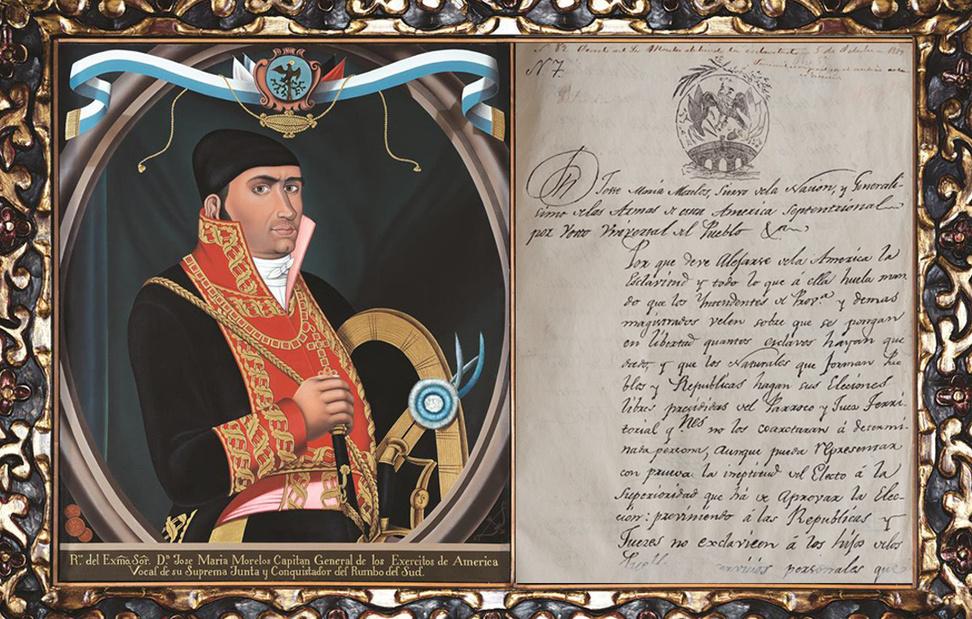 R.n del Exmõ. Sõr. D.n Jose Maria Morelos Capitan General de los Exercitos de America
Vocal de su Suprema Junta y Conquistador del Rumbo del Sud.
N 7
Jose María Morelos, Siervo dela Nacion, y Generali-
simo delas Armas de esta America Septentrional
por Voto Universal del Pueblo &a
Por que deve Alejarse dela America la
Esclavitud y todo lo que á ella huela man-
do que los Yntendentes de Prov.a y demas
magistrados velen sobre que se pongan
en libertad quantos esclavos hayan que
dado, y que los Naturales que forman Pue
blos y Republicas hagan sus Elecciones
libres presididas del Parroco y Juez Terri-
torial q.nes no los coartaran á determi-
nada persona, aunque pueda representar
con prueba la ineptitud del Electo á la
Superioridad que há de Aprovar la Elec-
cion: previniendo á las Republicas y
Jueces no esclavicen á los hijos delos
servicios personales que